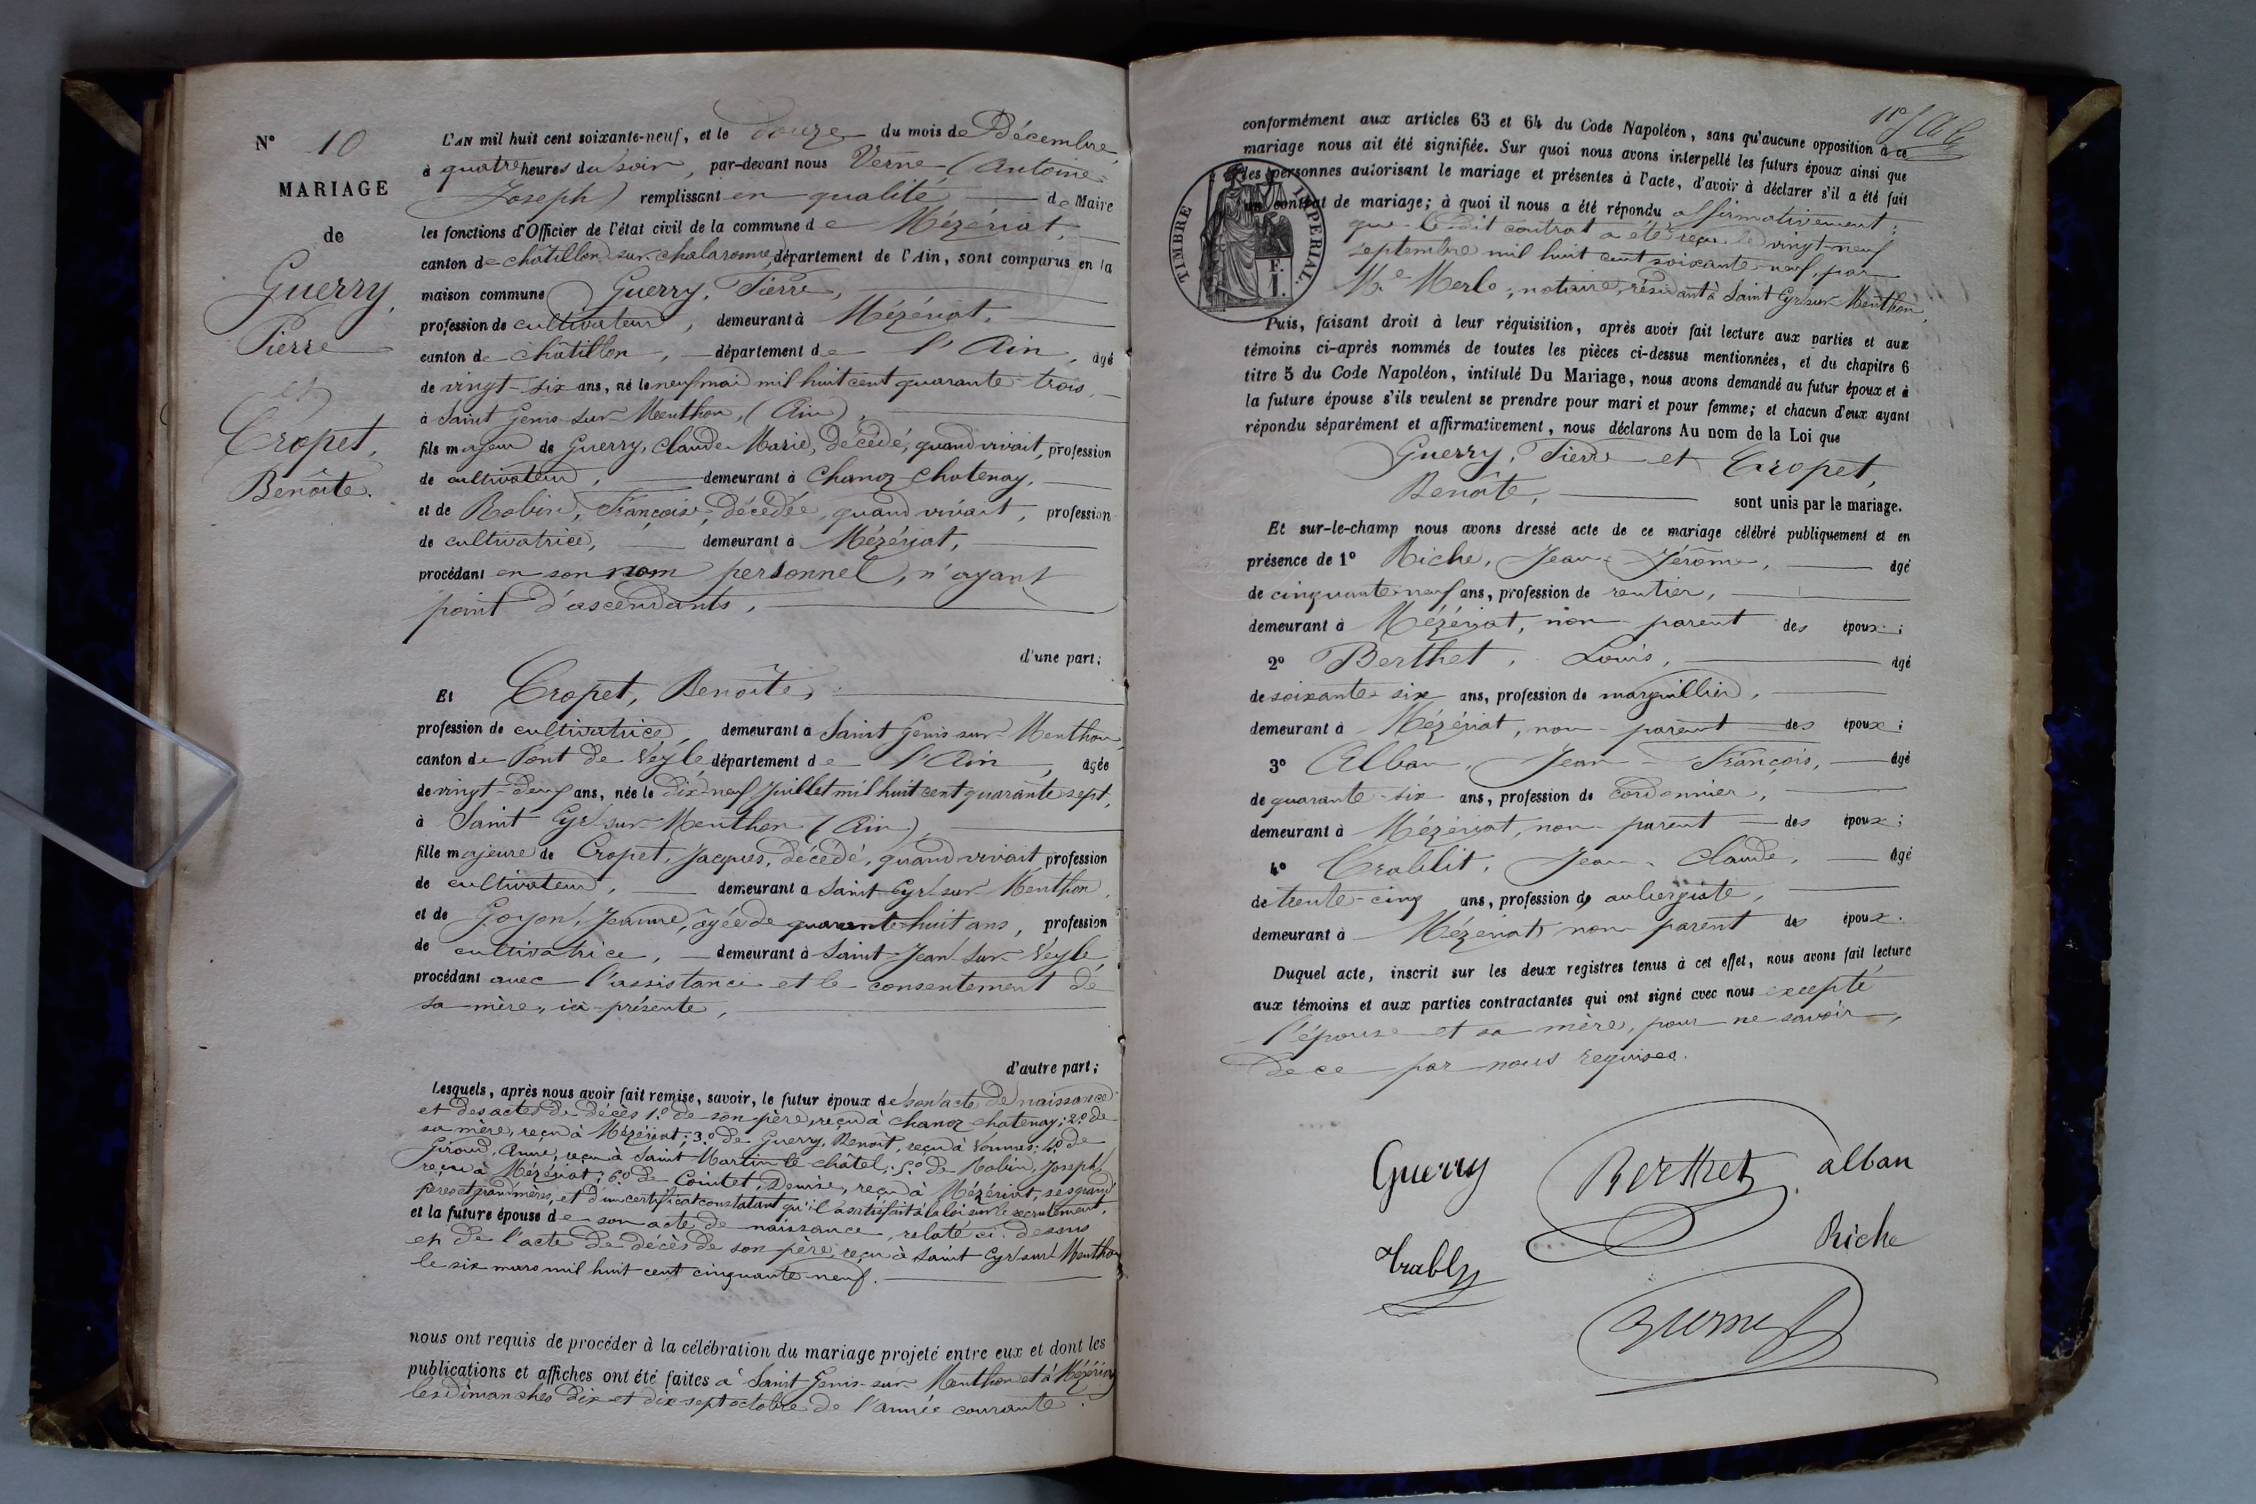 N° 10
MARIAGE
de
Guerry,
Pierre
et
Cropet,
Benoîte.
L'AN mil huit cent soixante-neuf, et le douze du mois de Décembre,
à quatre heures du soir, par-devant nous Verne (Antoine-
Joseph) remplissant en qualité de Maire
les fonctions d'Officier de l'état civil de la commune de Mézériat,
canton de châtillon-sur-chalaronne, département de l'Ain, sont comparus en la
maison commune Guerry, Pierre,
profession de cultivateur, demeurant à Mézériat,
canton de châtillon, département de l'Ain, âgé
de vingt-six ans, né le neuf mai mil huit cent quarante-trois,
à Saint Genis-sur-Menthon, (Ain),
fils majeur de Guerry, Claude-Marie, décédé, quand vivait, profession
de cultivateur, demeurant à Chanoz-Chatenay,
et de Robin, Françoise, décédée, quand vivait, profession
de cultivatrice, demeurant à Mézériat,
procédant en son nom personnel, n'ayant
point d'ascendants,
d'une part;
Et Cropet, Benoîte,
profession de cultivatrice, demeurant à Saint Genis-sur-Menthon,
canton de Pont de Veyle, département de l'Ain, âgée
de vingt-deux ans, née le dix-neuf Juillet mil huit cent quarante sept,
à Saint Cyr-sur-Menthon (Ain),
fille majeure de Cropet, Jacques, décédé, quand vivait, profession
de cultivateur, demeurant à Saint-Cyr-sur-Menthon,
et de Goyon, Jeanne, âgée de quarante-huit ans, profession
de cultivatrice, demeurant à Saint-Jean-sur-Veyle,
procédant avec l'assistance et le consentement de
sa mère, ici présente,
d'autre part;
Lesquels, après nous avoir fait remise, savoir, le futur époux de son acte de naissance
et des actes de décès 1° de son père, reçu à Chanoz-chatenay; 2° de
sa mère, reçu à Mézériat; 3° de Guerry, Benoît, reçu à Vonnas; 4° de
Giroud, Anne, reçu à Saint Martin-le-châtel; 5° de Robin, Joseph,
reçu à Mézériat; 6° de Comtet, Denise, reçu à Mézériat, ses grands
pères et grand'mères, et d'un certificat constatant qu'il a satisfait à la loi sur le recrutement,
et la future épouse de son acte de naissance, relaté ci-dessus
et de l'acte de décès de son père, reçu à Saint Cyr-sur-Menthon
le six mars mil huit cent cinquante-neuf.
nous ont requis de procéder à la célébration du mariage projeté entre eux et dont les
publications et affiches ont été faites à Saint-Genis-sur-Menthon et à Mézériat
les dimanches dix et dix-sept octobre de l'année courante.
conformément aux articles 63 et 64 du Code Napoléon, sans qu'aucune opposition à ce
mariage nous ait été signifiée. Sur quoi nous avons interpellé les futurs époux ainsi que
les personnes autorisant le mariage et présentes à l'acte, d'avoir à déclarer s'il a été fait
un contrat de mariage; à quoi il nous a été répondu affirmativement;
TIMBRE IMPERIAL.
F.
I.
que ledit contrat a été reçu le vingt-neuf
septembre mil huit cent soixante-neuf, par
Me Merle, notaire, résidant à Saint Cyr-sur-Menthon,
Puis, faisant droit à leur réquisition, après avoir fait lecture aux parties et aux
témoins ci-après nommés de toutes les pièces ci-dessus mentionnées, et du chapitre 6
titre 5 du Code Napoléon, intitulé Du Mariage, nous avons demandé au futur époux et à
la future épouse s'ils veulent se prendre pour mari et pour femme; et chacun d'eux ayant
répondu séparément et affirmativement, nous déclarons Au nom de la Loi que
Guerry, Pierre et Cropet,
Benoîte, sont unis par le mariage.
Et sur-le-champ nous avons dressé acte de ce mariage célébré publiquement et en
présence de 1° Riche, Jean-Jérôme, âgé
de cinquante-neuf ans, profession de rentier,
demeurant à Mézériat, non parent des époux;
2° Berthet, Louis, âgé
de soixante-six ans, profession de marguillier,
demeurant à Mézériat, non parent des époux;
3° Alban, Jean-François, âgé
de quarante-six ans, profession de cordonnier,
demeurant à Mézériat, non parent des époux;
4° Trablit, Jean-Claude, âgé
de trente-cinq ans, profession de aubergiste,
demeurant à Mézériat, non parent des époux.
Duquel acte, inscrit sur les deux registres tenus à cet effet, nous avons fait lecture
aux témoins et aux parties contractantes qui ont signé avec nous excepté
l'épouse et sa mère, pour ne savoir,
de ce par nous requises.
Guerry Berthet alban
Riche